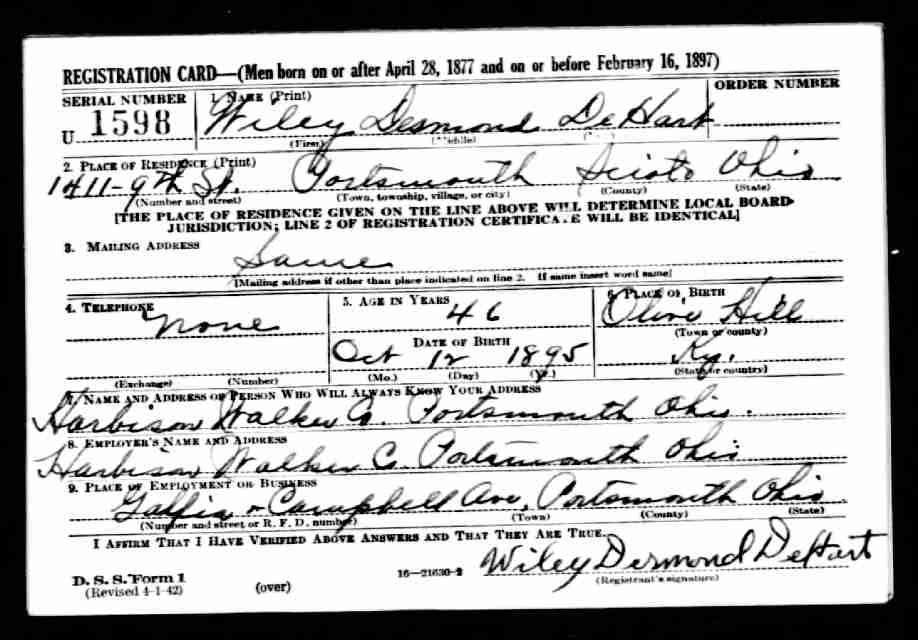 REGISTRATION CARD—(Men born on or after April 28, 1877 and on or before February 16, 1897)
SERIAL NUMBER 1. NAME (Print) ORDER NUMBER
U 1598 Wiley Desmond DeHart
(First) (Middle) (Last)
2. PLACE OF RESIDENCE (Print)
1411-9th St. Portsmouth Scioto Ohio
(Number and street) (Town, township, village, or city) (County) (State)
[THE PLACE OF RESIDENCE GIVEN ON THE LINE ABOVE WILL DETERMINE LOCAL BOARD
JURISDICTION; LINE 2 OF REGISTRATION CERTIFICATE WILL BE IDENTICAL]
3. MAILING ADDRESS
Same
[Mailing address if other than place indicated on line 2. If same insert word same]
4. TELEPHONE 5. AGE IN YEARS 6. PLACE OF BIRTH
none 46 Olive Hill
DATE OF BIRTH (Town or county)
Oct 12 1895 Ky.
(Exchange) (Number) (Mo.) (Day) (Yr.) (State or country)
7. NAME AND ADDRESS OF PERSON WHO WILL ALWAYS KNOW YOUR ADDRESS
Harbison Walker Co. Portsmouth Ohio.
8. EMPLOYER'S NAME AND ADDRESS
Harbison Walker Co. Portsmouth Ohio
9. PLACE OF EMPLOYMENT OR BUSINESS
Gallia & Campbell Ave, Portsmouth Ohio
(Number and street or R. F. D. number) (Town) (County) (State)
I AFFIRM THAT I HAVE VERIFIED ABOVE ANSWERS AND THAT THEY ARE TRUE.
Wiley Desmond DeHart
D. S. S. Form 1 16—21630-2 (Registrant's signature)
(Revised 4-1-42) (over)